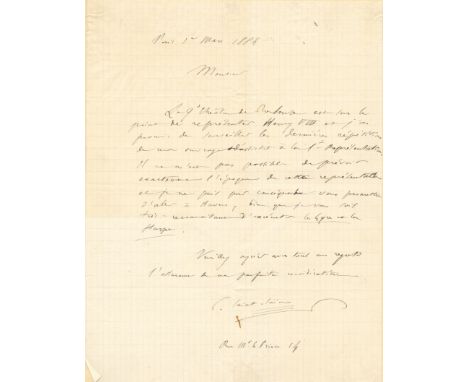 Paris 1er Mars 1886
Monsieur
Le Gd Théâtre de Bordeaux est sur le
point de représenter Henry VIII et j'ai
promis de surveiller les dernières répétitions
de mon ouvrage et d'assister à la 1re Représentation
Il ne m'est pas possible de prévoir
exactement l'époque de cette représentation
et je ne puis par conséquent vous promettre
d'aller à bien que je vous sois
très reconnaissant d'exécuter la Lyre et la
Harpe.
Veuillez agréer avec tous mes regrets
l'assurance de ma parfaite considération
C. Saint-Saëns
Rue Mr le Prince 14